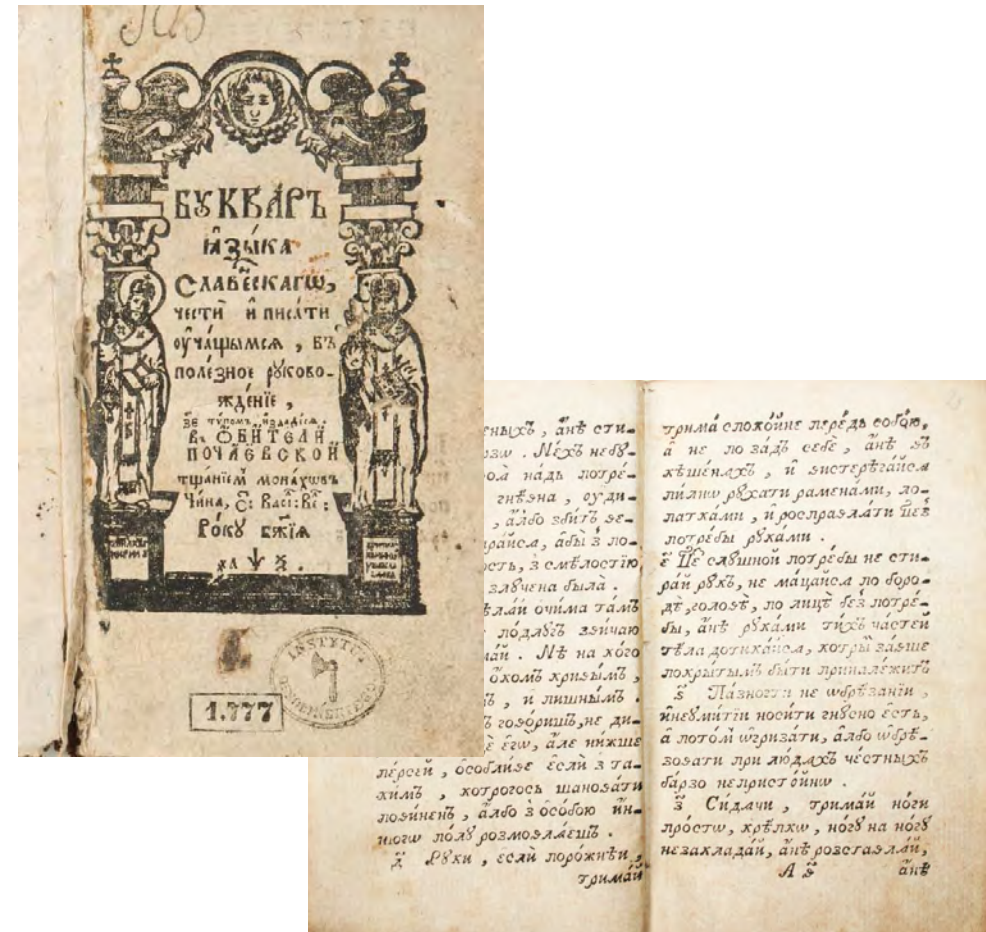 БꙋКВА́РЬ
ꙗ҆зы́ка
Славе́нскагѡ,
чести̇̀ и҆ писа́ти
ᲂу҆ча́щымсѧ, въ
поле́зное рꙋково-
жде́нїе,
въ Ѻ҆би́тели
поча́евской
тща́нїемъ мона́хѡвъ
Чи́на, С: Васі: Ві:
Ро́кꙋ бж҃їѧ
INSTYTUT
1.777
ныхъ, а҆нѣ сти-
. Не́хъ небꙋ-
надъ потре́-
гнѣвна, ᲂуди-
, а҆лбо збитъ ве-
а҆бы̀ з по-
сть, з смѣлостїю
злꙋчена была̀.
ѣла́й очи́ма та́мъ
подлꙋ́гъ звичаю
ма́й. Нѣ на ко́го
о҆комъ кривы́мъ,
, и лишны́мъ.
гово́ришъ, не ди-
є҆гѡ̀, але ни́жше
пе́рсей, ѻ҆собли́ве є҆сли̇̀ з та-
ки́мъ, котрогось шанова́ти
пови́ненъ, а҆лбо з ѻ҆со́бою и҆н-
шогѡ по́лꙋ розмовлѧ́ешъ.
д҃ Рꙋ́ки, є҆сли̇̀ поро́жнѣи,
трима́й
трима̀ споко́йне пере́дъ собо́ю,
а҆ не по за́дъ себѐ, а҆нѣ въ
кѣше́нѧхъ, и҆ вистерѣга́йсѧ
пи́лнѡ рꙋхати рамена́ми, ло-
патка́ми, и҆ росправлѧ́ти безъ
потре́бы рꙋка́ми.
є҃ Безъ слꙋ́шной потре́бы не сти-
ра́й рꙋкъ, не ма́цайсѧ по боро-
дѣ̀, голове́, по лицѣ̀ безъ потре́-
бы, а҆нѣ рꙋка́ми ти́хъ ча́стей
тѣ́ла дотика́йсѧ, котры̀ за́вше
покры́тымъ бы́ти принале́житъ
ѕ҃ Па́зногти не ѡбрѣза́нїи,
и҆неꙋми́тїи носи́ти гнꙋ́сно є҆сть,
а҆ пото́мъ ѡ҆гриза́ти, а҆лбо ѡбрѣ-
зова́ти при лю́дѧхъ че́стныхъ
ба́рзо непристо́йнѡ.
з҃ Си́дѧчи, трима́й но́ги
про́стѡ, крѣ́пкѡ, но́гꙋ на но́гꙋ
незаклада́й, а҆нѣ розставлѧ́й,
А в҃ а҆нѣ